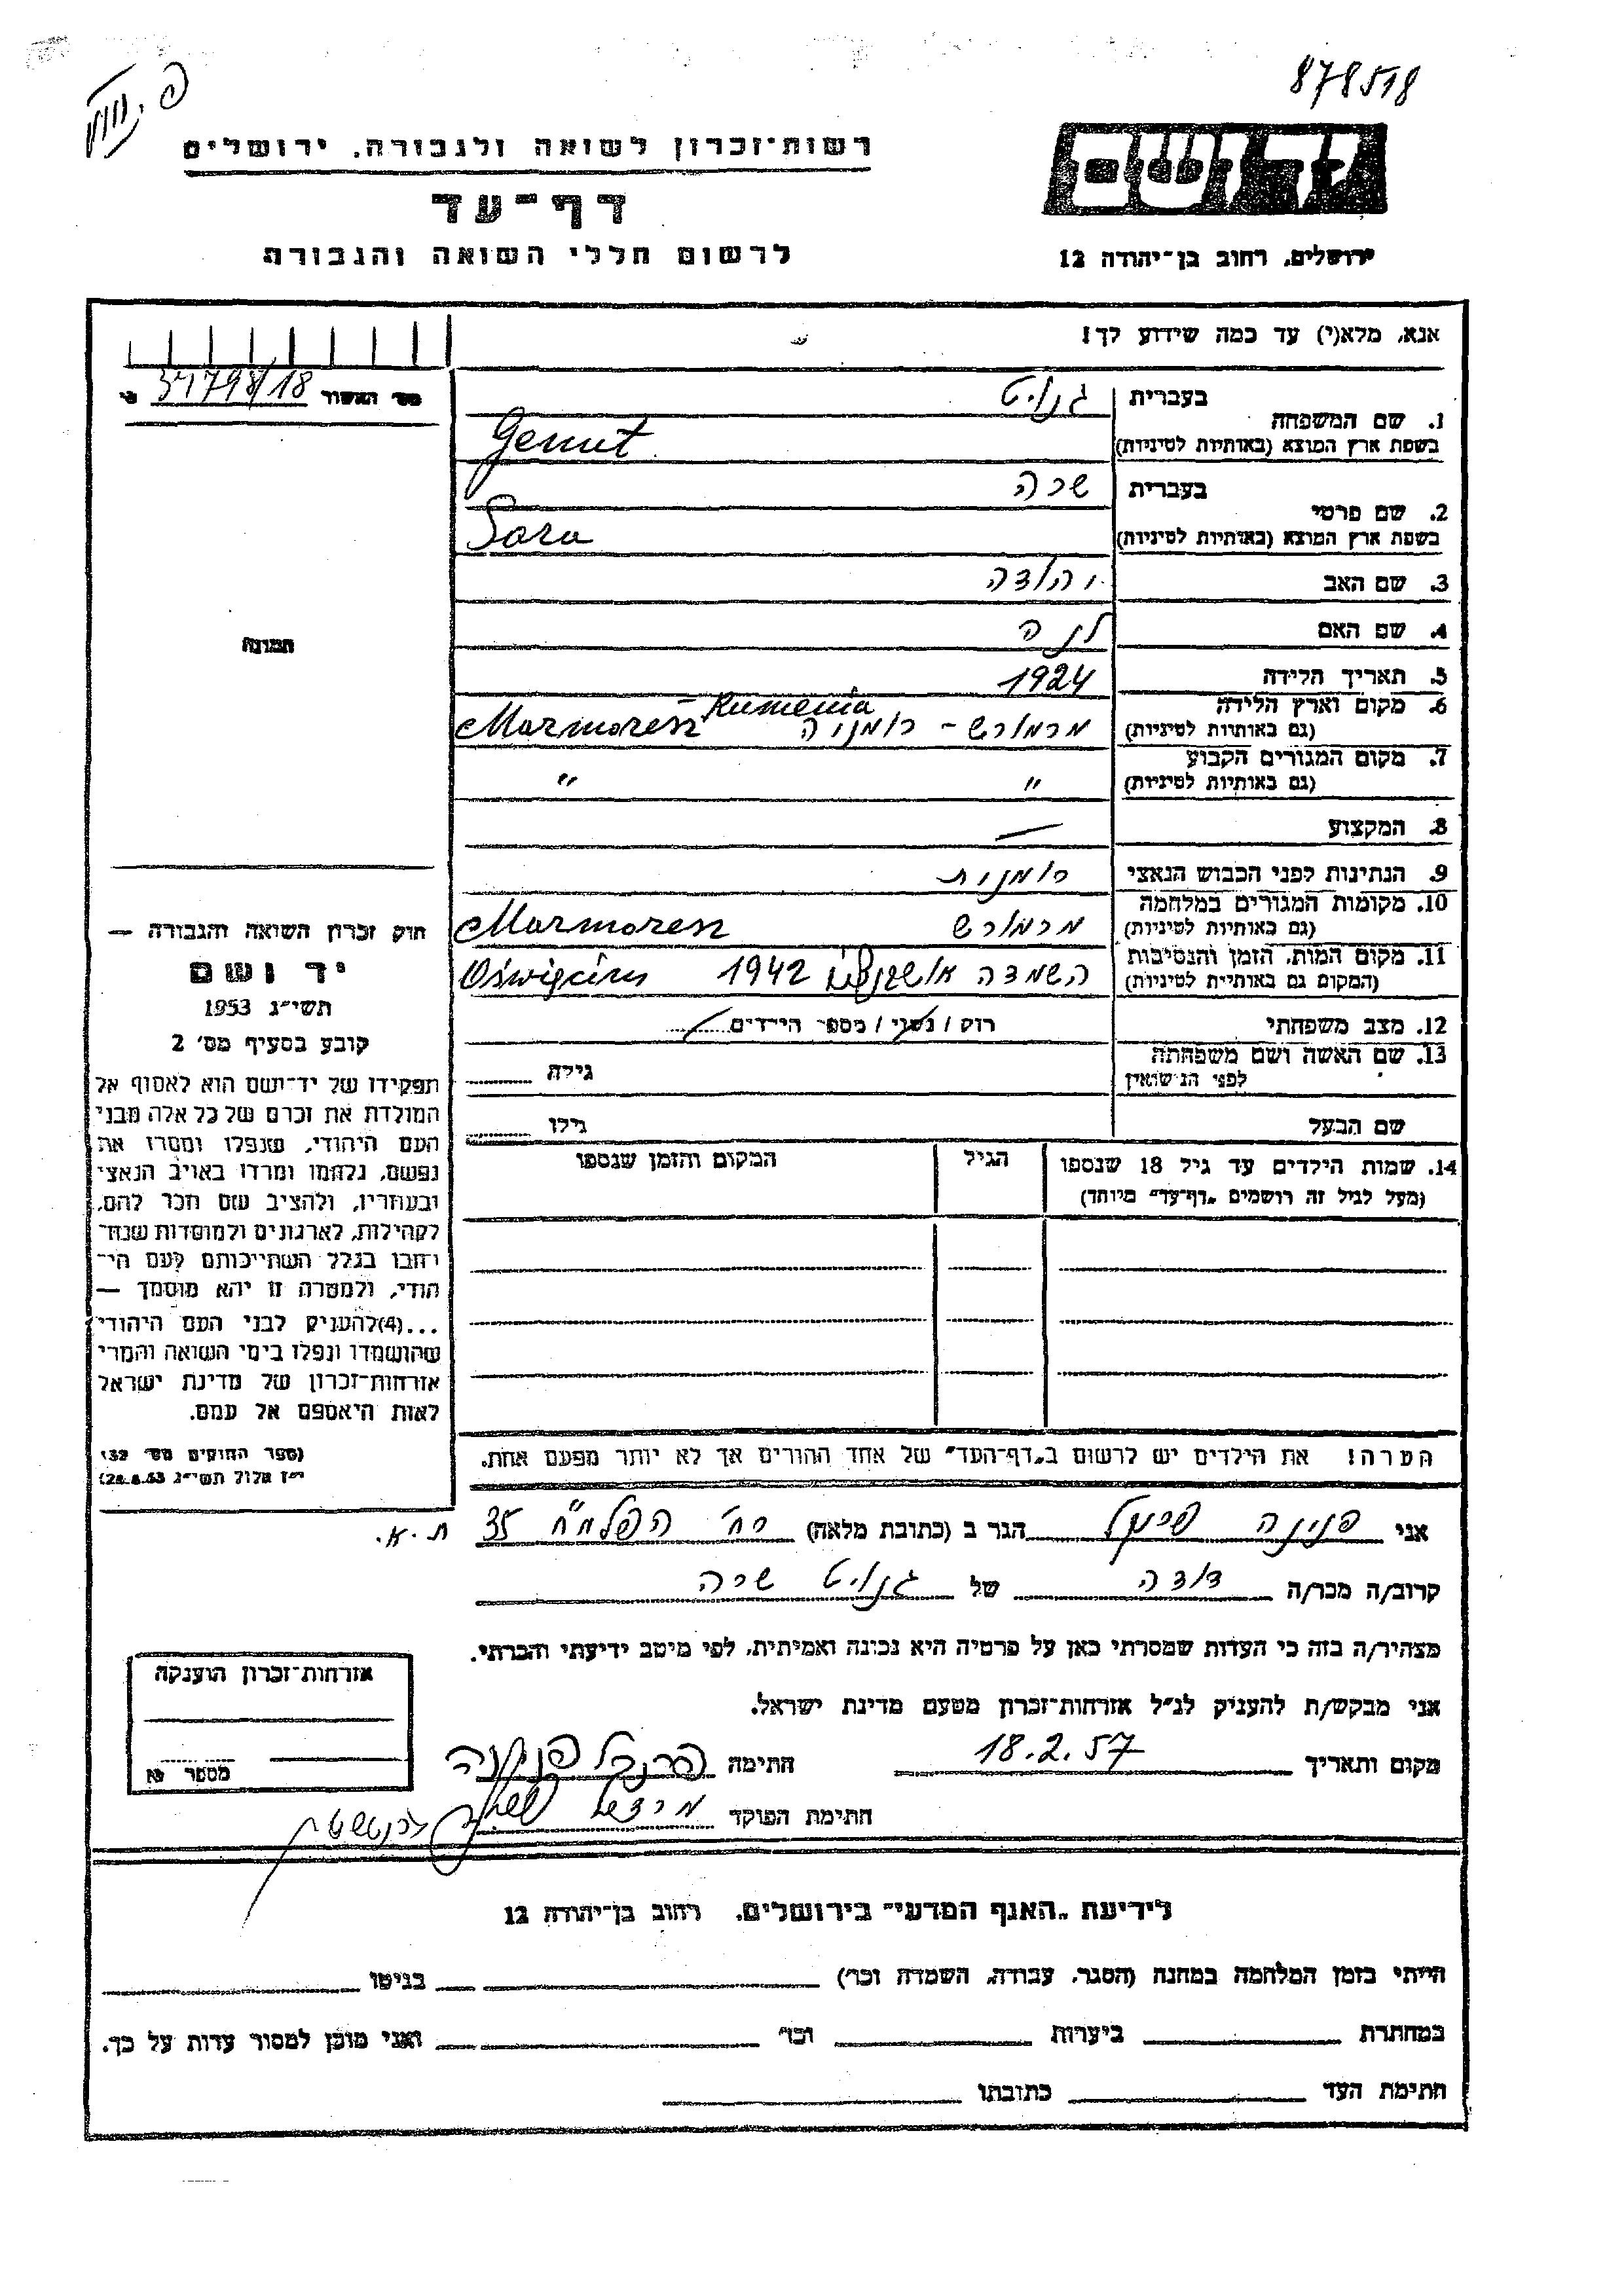 878518
רשות־זכרון לשואה ולגבורה, ירושלים
דף־עד
לרשום חללי השואה והגבורה
יד ושם
ירושלים, רחוב בן־יהודה 12
אנא, מלא(י) עד כמה שידוע לך!
מס׳ האשור
1. שם המשפחה בעברית
בשפת ארץ המוצא (באותיות לטיניות) Genut
2. שם פרטי בעברית שרה
בשפת ארץ המוצא (באותיות לטיניות) Sara
3. שם האב יהודה
4. שם האם
5. תאריך הלידה 1924
6. מקום וארץ הלידה
(גם באותיות לטיניות) מרמורש - רומניה Marmoresz - Rumenia
7. מקום המגורים הקבוע
(גם באותיות לטיניות) " "
8. המקצוע —
9. הנתינות לפני הכבוש הנאצי רומנית
10. מקומות המגורים במלחמה
(גם באותיות לטיניות) מרמורש Marmoresz
11. מקום המות, הזמן והנסיבות
(המקום גם באותיות לטיניות) השמדה 1942 Oświęcim
12. מצב משפחתי רוק / נשוי / מספר הילדים
13. שם האשה ושם משפחתה
לפני הנישואין גילה
שם הבעל גילו
14. שמות הילדים עד גיל 18 שנספו הגיל המקום והזמן שנספו
(מעל לגיל זה רושמים „דף־עד״ מיוחד)
הערה! את הילדים יש לרשום ב„דף־העד״ של אחד ההורים אך לא יותר מפעם אחת.
התמונה
חוק זכרון השואה והגבורה —
יד ושם
תשי״ג 1953
קובע בסעיף מס׳ 2
תפקידו של יד־ושם הוא לאסוף אל
המולדת את זכרם של כל אלה מבני
העם היהודי, שנפלו ומסרו את
נפשם, נלחמו ומרדו באויב הנאצי
ובעוזריו, ולהציב שם וזכר להם,
לקהילות, לארגונים ולמוסדות שנח־
רבו בגלל השתייכותם לעם הי־
הודי, ולמטרה זו יהא מוסמך —
...(4)להעניק לבני העם היהודי
שהושמדו ונפלו בימי השואה והמרי
אזרחות־זכרון של מדינת ישראל
לאות היאספם אל עמם.
(ספר החוקים מס׳ 132
י״ז אלול תשי״ג 28.8.53)
אני פנינה פרנקל הגר ב (כתובת מלאה) רח׳ הפלמ״ח 35 ת.א.
קרוב/ה מכר/ה דודה של שרה
מצהיר/ה בזה כי העדות שמסרתי כאן על פרטיה היא נכונה ואמיתית, לפי מיטב ידיעתי והכרתי.
אני מבקש/ת להעניק לנ״ל אזרחות־זכרון מטעם מדינת ישראל.
מקום ותאריך 18.2.57 חתימה פרנקל פנינה
חתימת הפוקד
אזרחות־זכרון הוענקה
מספר
לידיעת „האגף המדעי״ בירושלים, רחוב בן־יהודה 12
הייתי בזמן המלחמה במחנה (הסגר, עבודה, השמדה וכר׳) בגיטו
במחתרת ביערות וכר׳ ואני מוכן למסור עדות על כך.
חתימת העד כתובתו